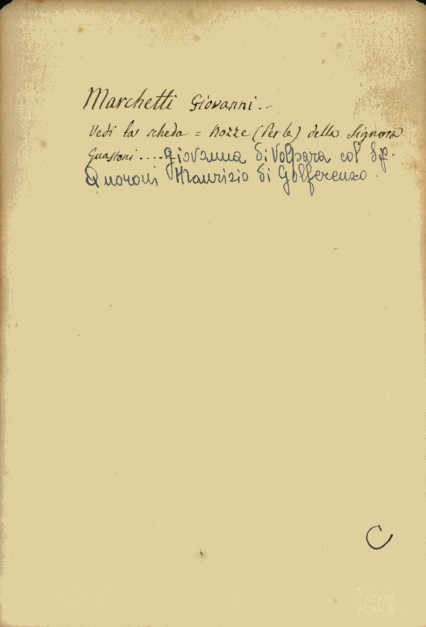 Marchetti Giovanni. -
Vedi la scheda = Nozze (Per le) della Signora
Guastoni .... Giovanna di Volpara col Sig.
Quaroni Maurizio di Golferenzo.
C